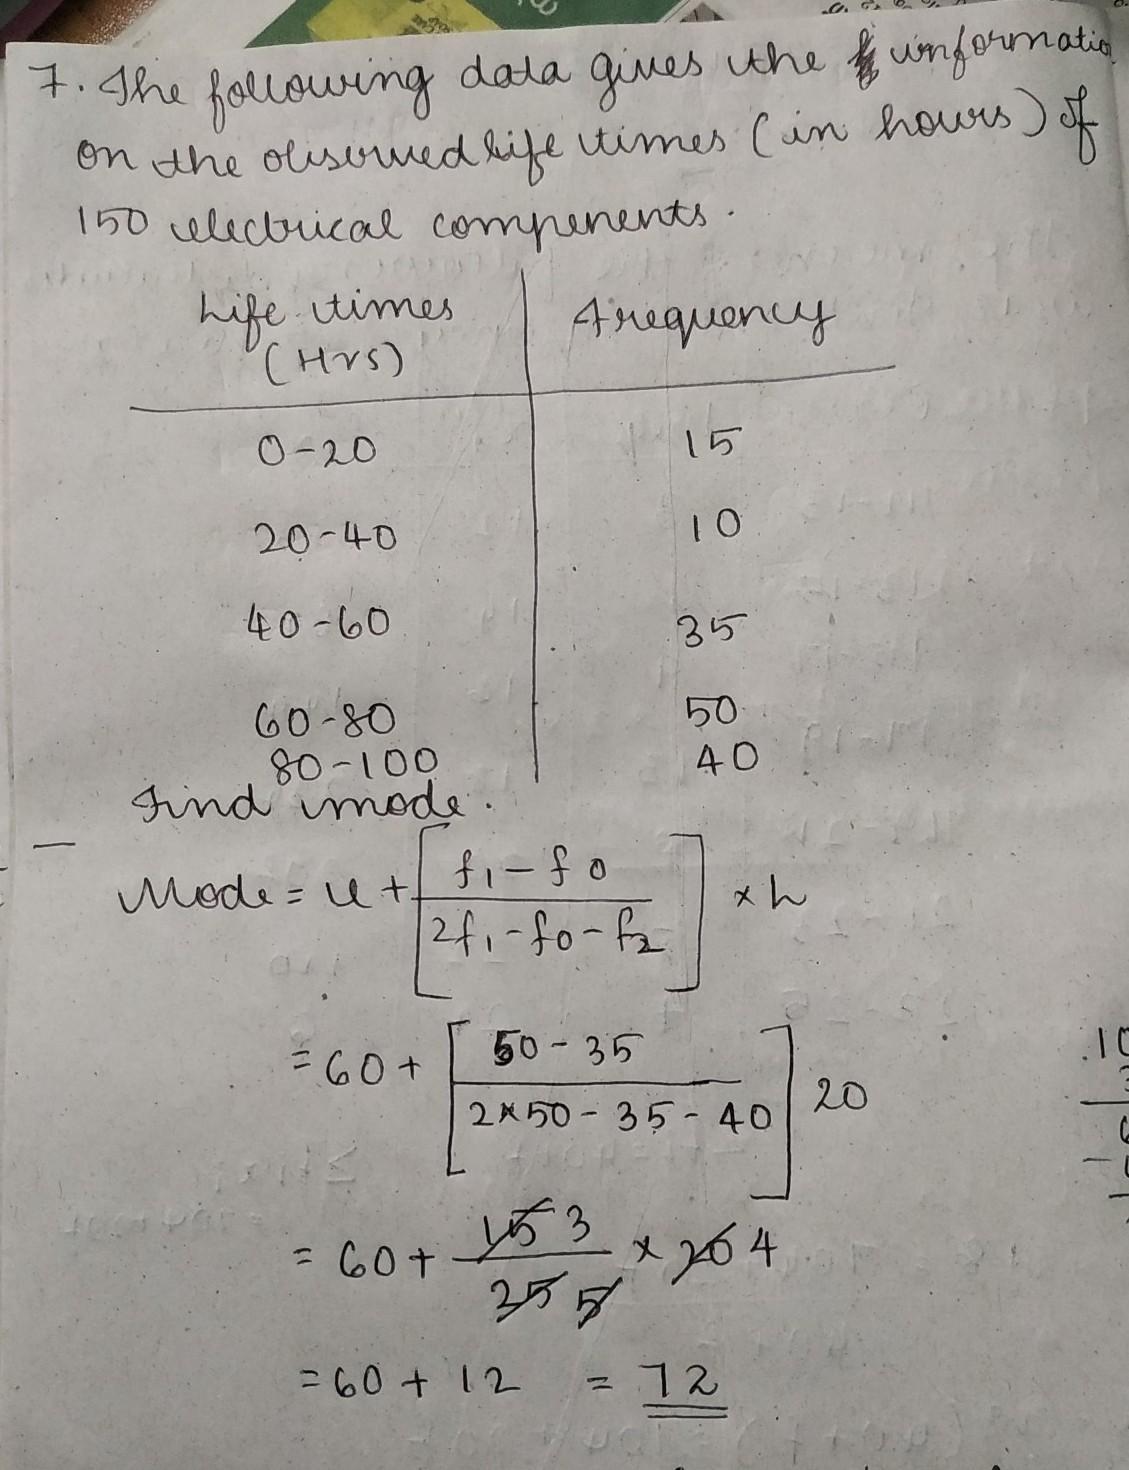 7. The following data gives the informatio
on the observed life times (in hours) of
150 electrical compenents.
Life times (Hrs) | Frequency
0-20 | 15
20-40 | 10
40-60 | 35
60-80 | 50
80-100 | 40
Find mode.
Mode = l + [f1 - f0 / 2f1 - f0 - f2] × h
= 60 + [50 - 35 / 2×50 - 35 - 40] 20
= 60 + 15 3 / 25 5 × 20 4
= 60 + 12 = 72